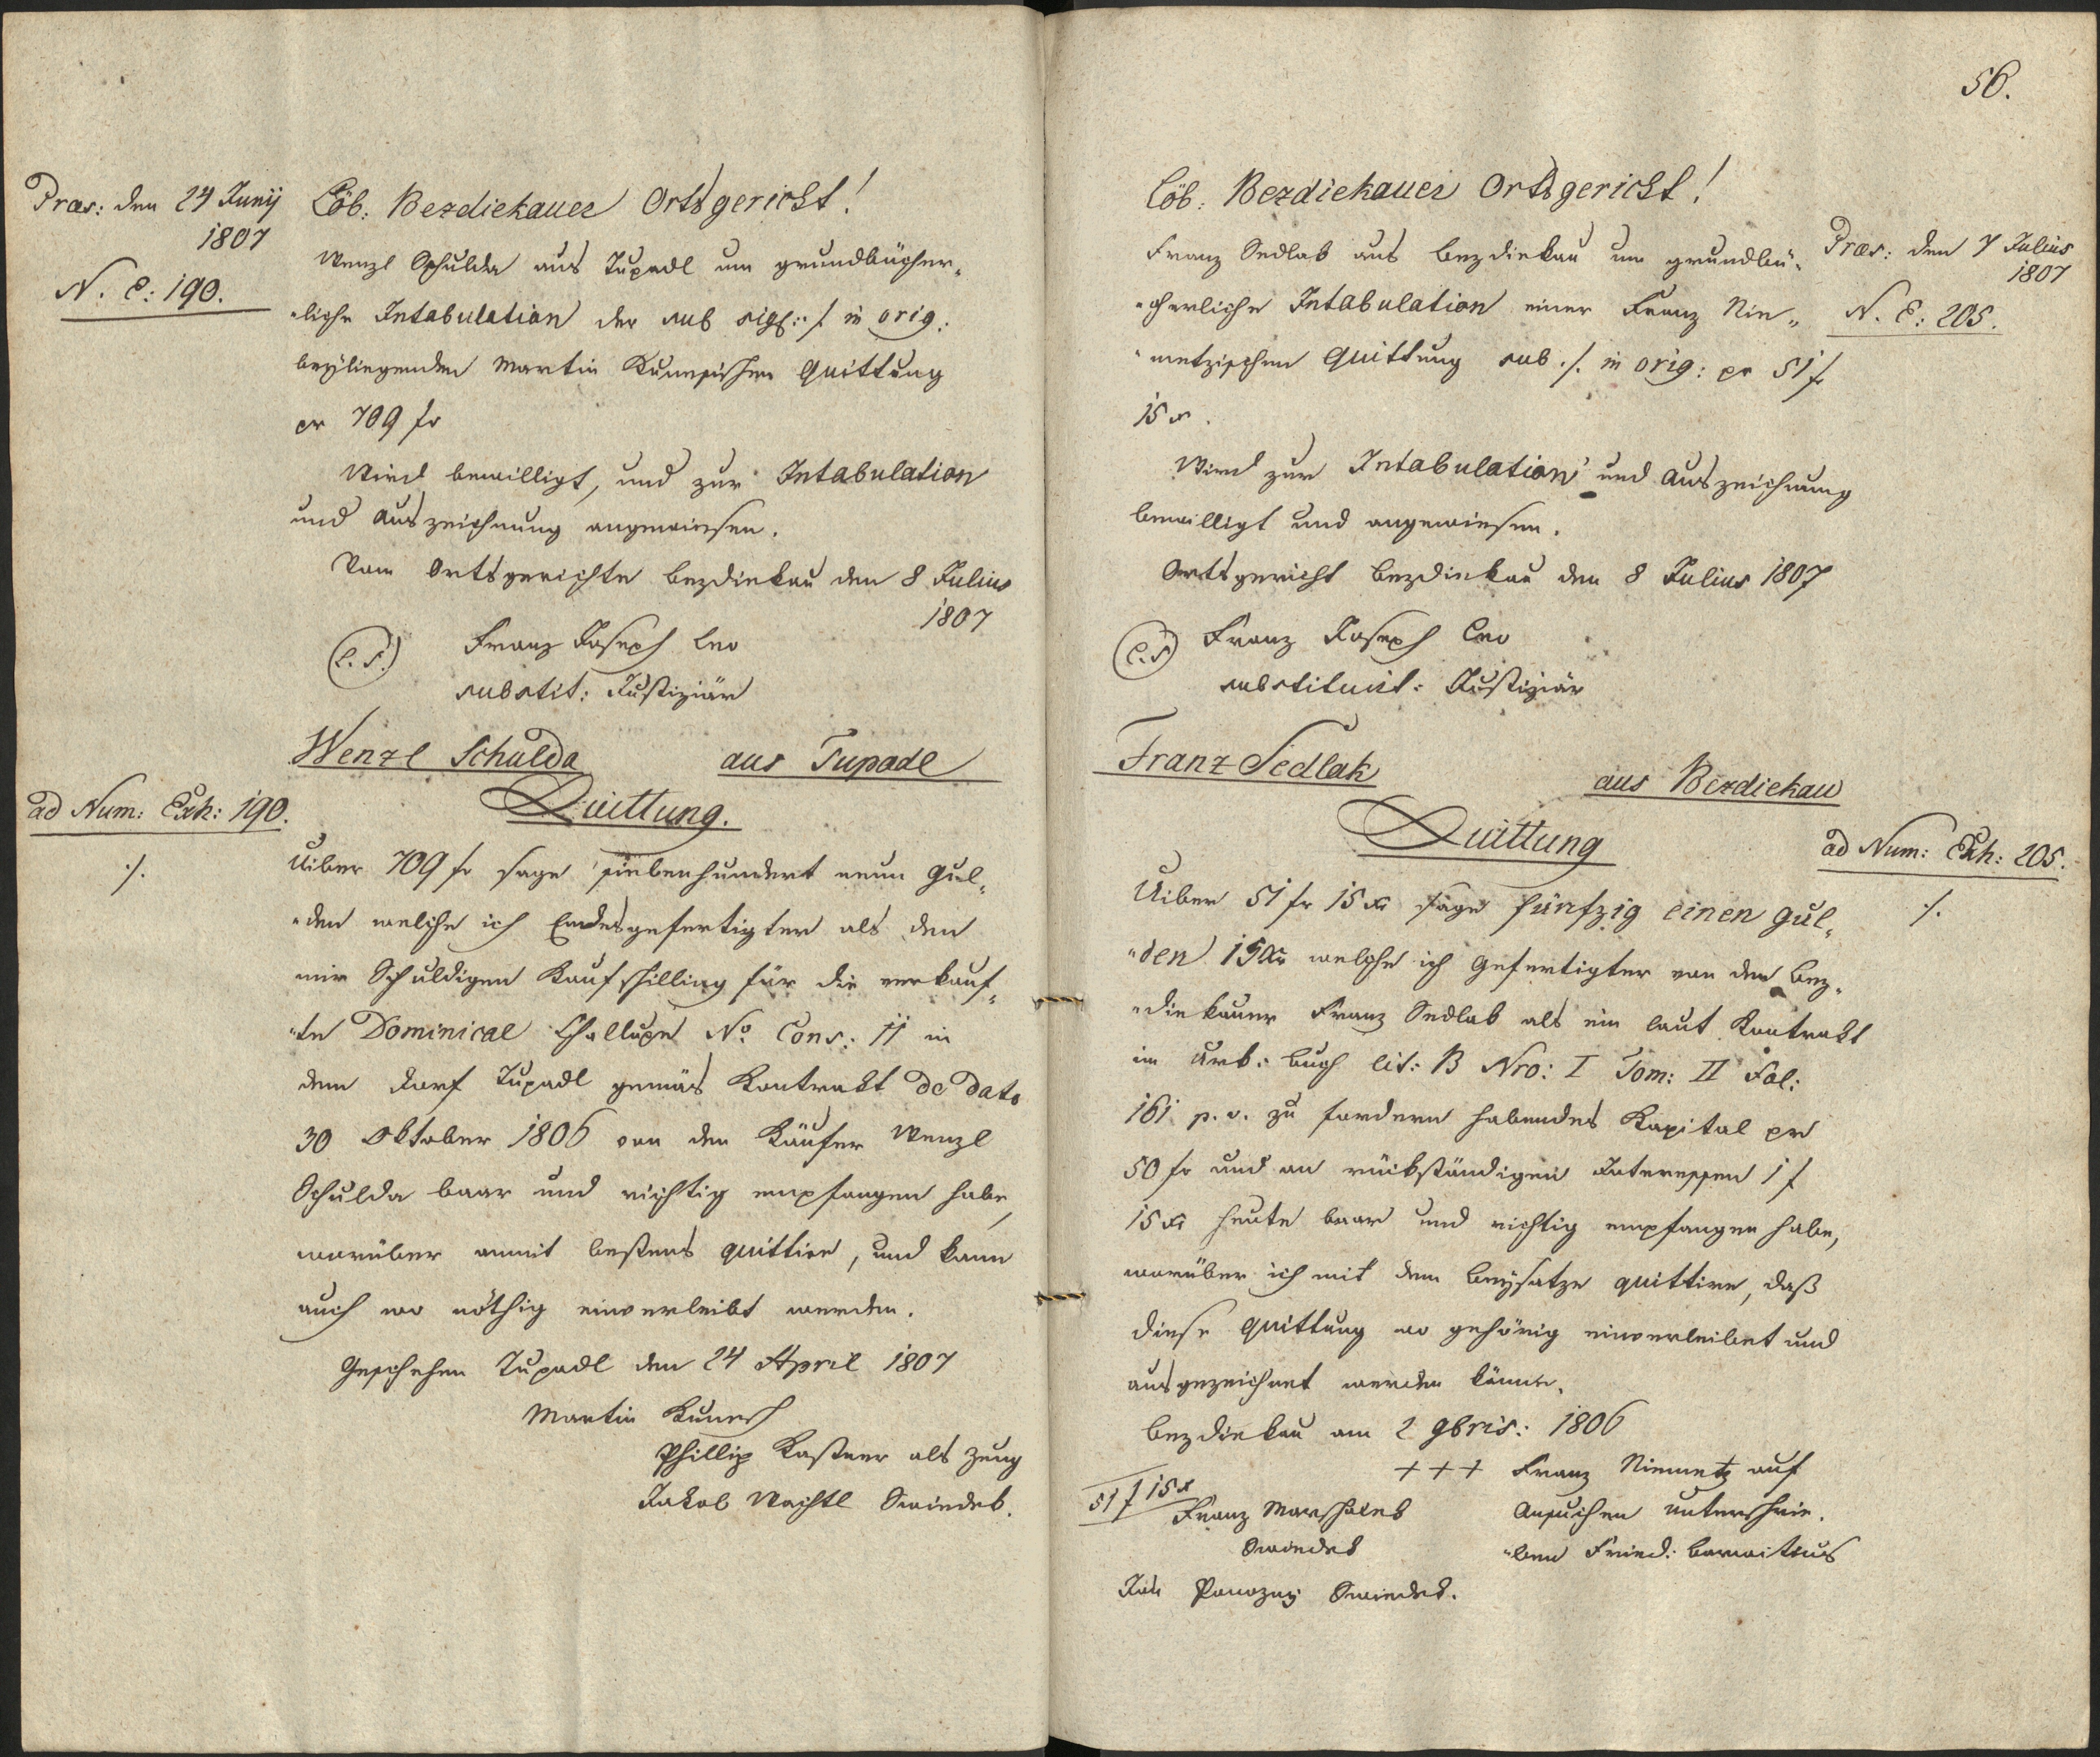 Præs: den 24 Junij
1807
N. E: 190.
Löb: Bezdiekauer Ortsgericht!
Wenzl Schulda aus Tupadl um grundbücher„
„liche Intabulation der sub sigl: ./. in orig:
beÿliegenden Martin Kuneschischen Quittung
pr 709 fr
Wird bewilligt, und zur Intabulation
und Auszeichnung angewiesen.
Vom Ortsgerichte Bezdiekau den 8 Julius
1807
(L. S.) Franz Joseph Leo
substit: Justiziär
Wenzl Schulda aus Tupadl
ad Num: Exh: 190.
Quittung.
./.
Uiber 709 fr sage siebenhundert neun Gul„
„den welche ich Endesgefertigter als den
mir Schuldigen Kaufschilling für die verkauf„
„te Dominical Challupe No Cons: 11 in
dem Dorf Tupadl gemäs Kontrakt de dato
30 Oktober 1806 von dem Käufer Wenzl
Schulda baar und richtig empfangen habe,
worüber anmit bestens quittire, und kann
auch wo nöthig einverleibt werden.
Geschehen Tupadl den 24 April 1807
Martin Kunesch
Phillip Kastner als Zeug
Jakob Wachtl Swiedek.
56.
Löb: Bezdiekauer Ortsgericht!
Præs: den 7 Julius
1807
N. E: 205.
Franz Sedlak aus Bezdiekau um grundbü„
„cherliche Intabulation einer Franz Nie„
„metzischen Quittung sub ./. in orig: pr 51 f
15 x.
Wird zur Intabulation und Auszeichnung
bewilligt und angewiesen.
Ortsgericht Bezdiekau den 8 Julius 1807
(L. S) Franz Joseph Leo
substituirt: Justiziär
Franz Sedlak aus Bezdiekau
Quittung
ad Num: Exh: 205.
./.
Uiber 51 fr 15 xr sage fünfzig einen Gul„
„den 15 xr welche ich Gefertigter von dem Bez„
„diekauer Franz Sedlak als ein laut Kontrakt
im Urb: Buch lit: B Nro: I Tom: II Fol:
161 p. v. zu fordern habendes Kapital pr
50 fr und an rückständigen Interessen 1 f
15 xr heute baar und richtig empfangen habe,
worüber ich mit dem Beysatze quittire, daß
diese Quittung wo gehörig einverleibet und
ausgezeichnet werden könne.
Bezdiekau am 2 9bris: 1806
+++ Franz Niemetz auf
51 f 15 x
Franz Marschalek Ansuchen unterschrie„
Swiedek „ben Fried:
Jan Swiedek.